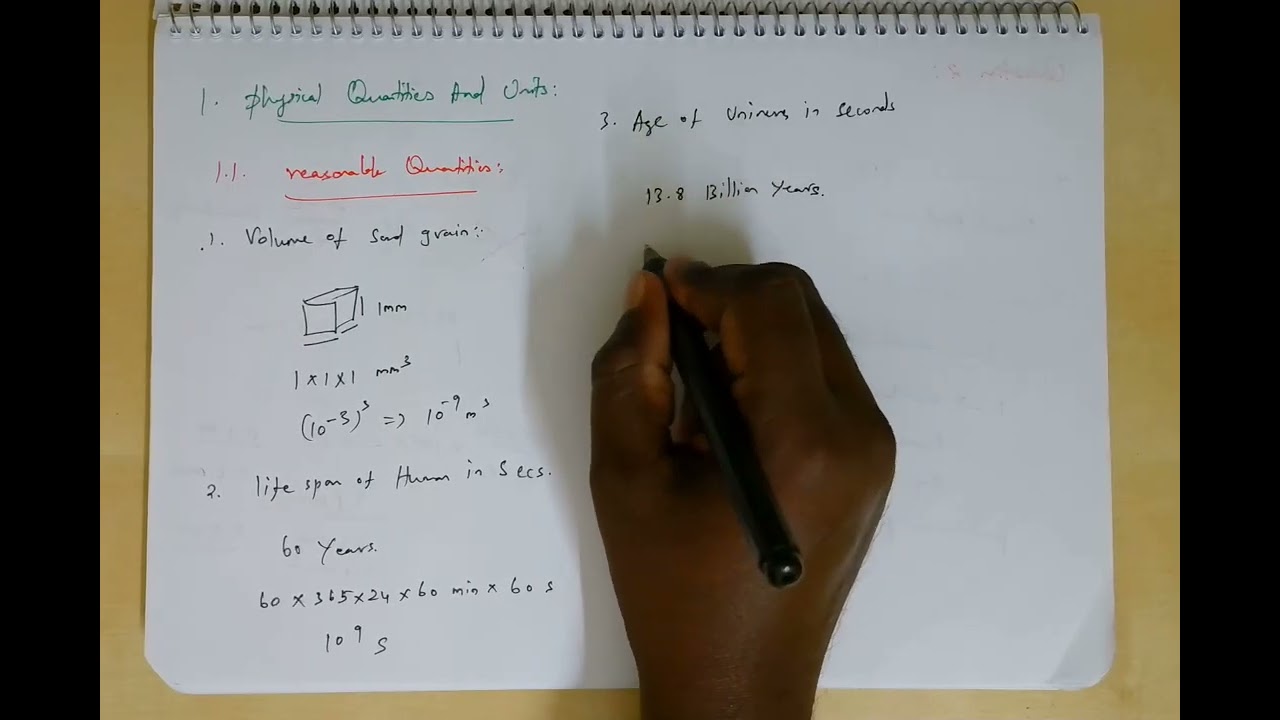 1. Physical Quantities And Units:
1.1. reasonable Quantities:
1. Volume of sand grain:
1mm
1 x 1 x 1 mm³
(10⁻³)³ => 10⁻⁹ m³
2. life span of Human in Secs.
60 Years.
60 x 365 x 24 x 60 min x 60 s
10⁹ s
3. Age of in seconds
13.8 Billion Years.